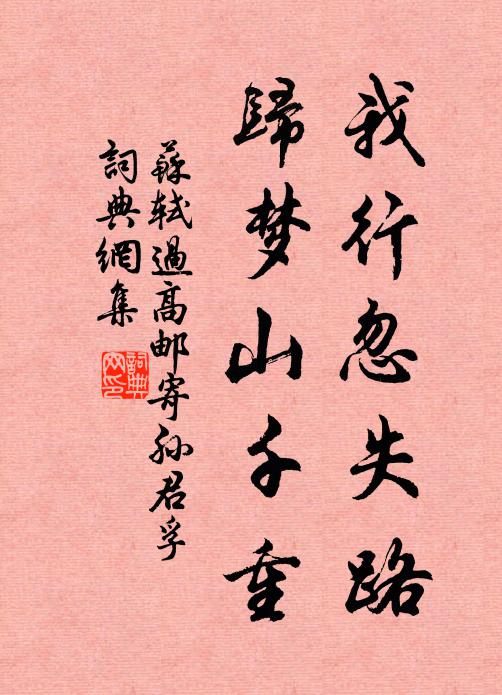 我行忽失路
歸梦山千重
蘇軾過高邮寄孙君孚
詞典網集
詞典
网印